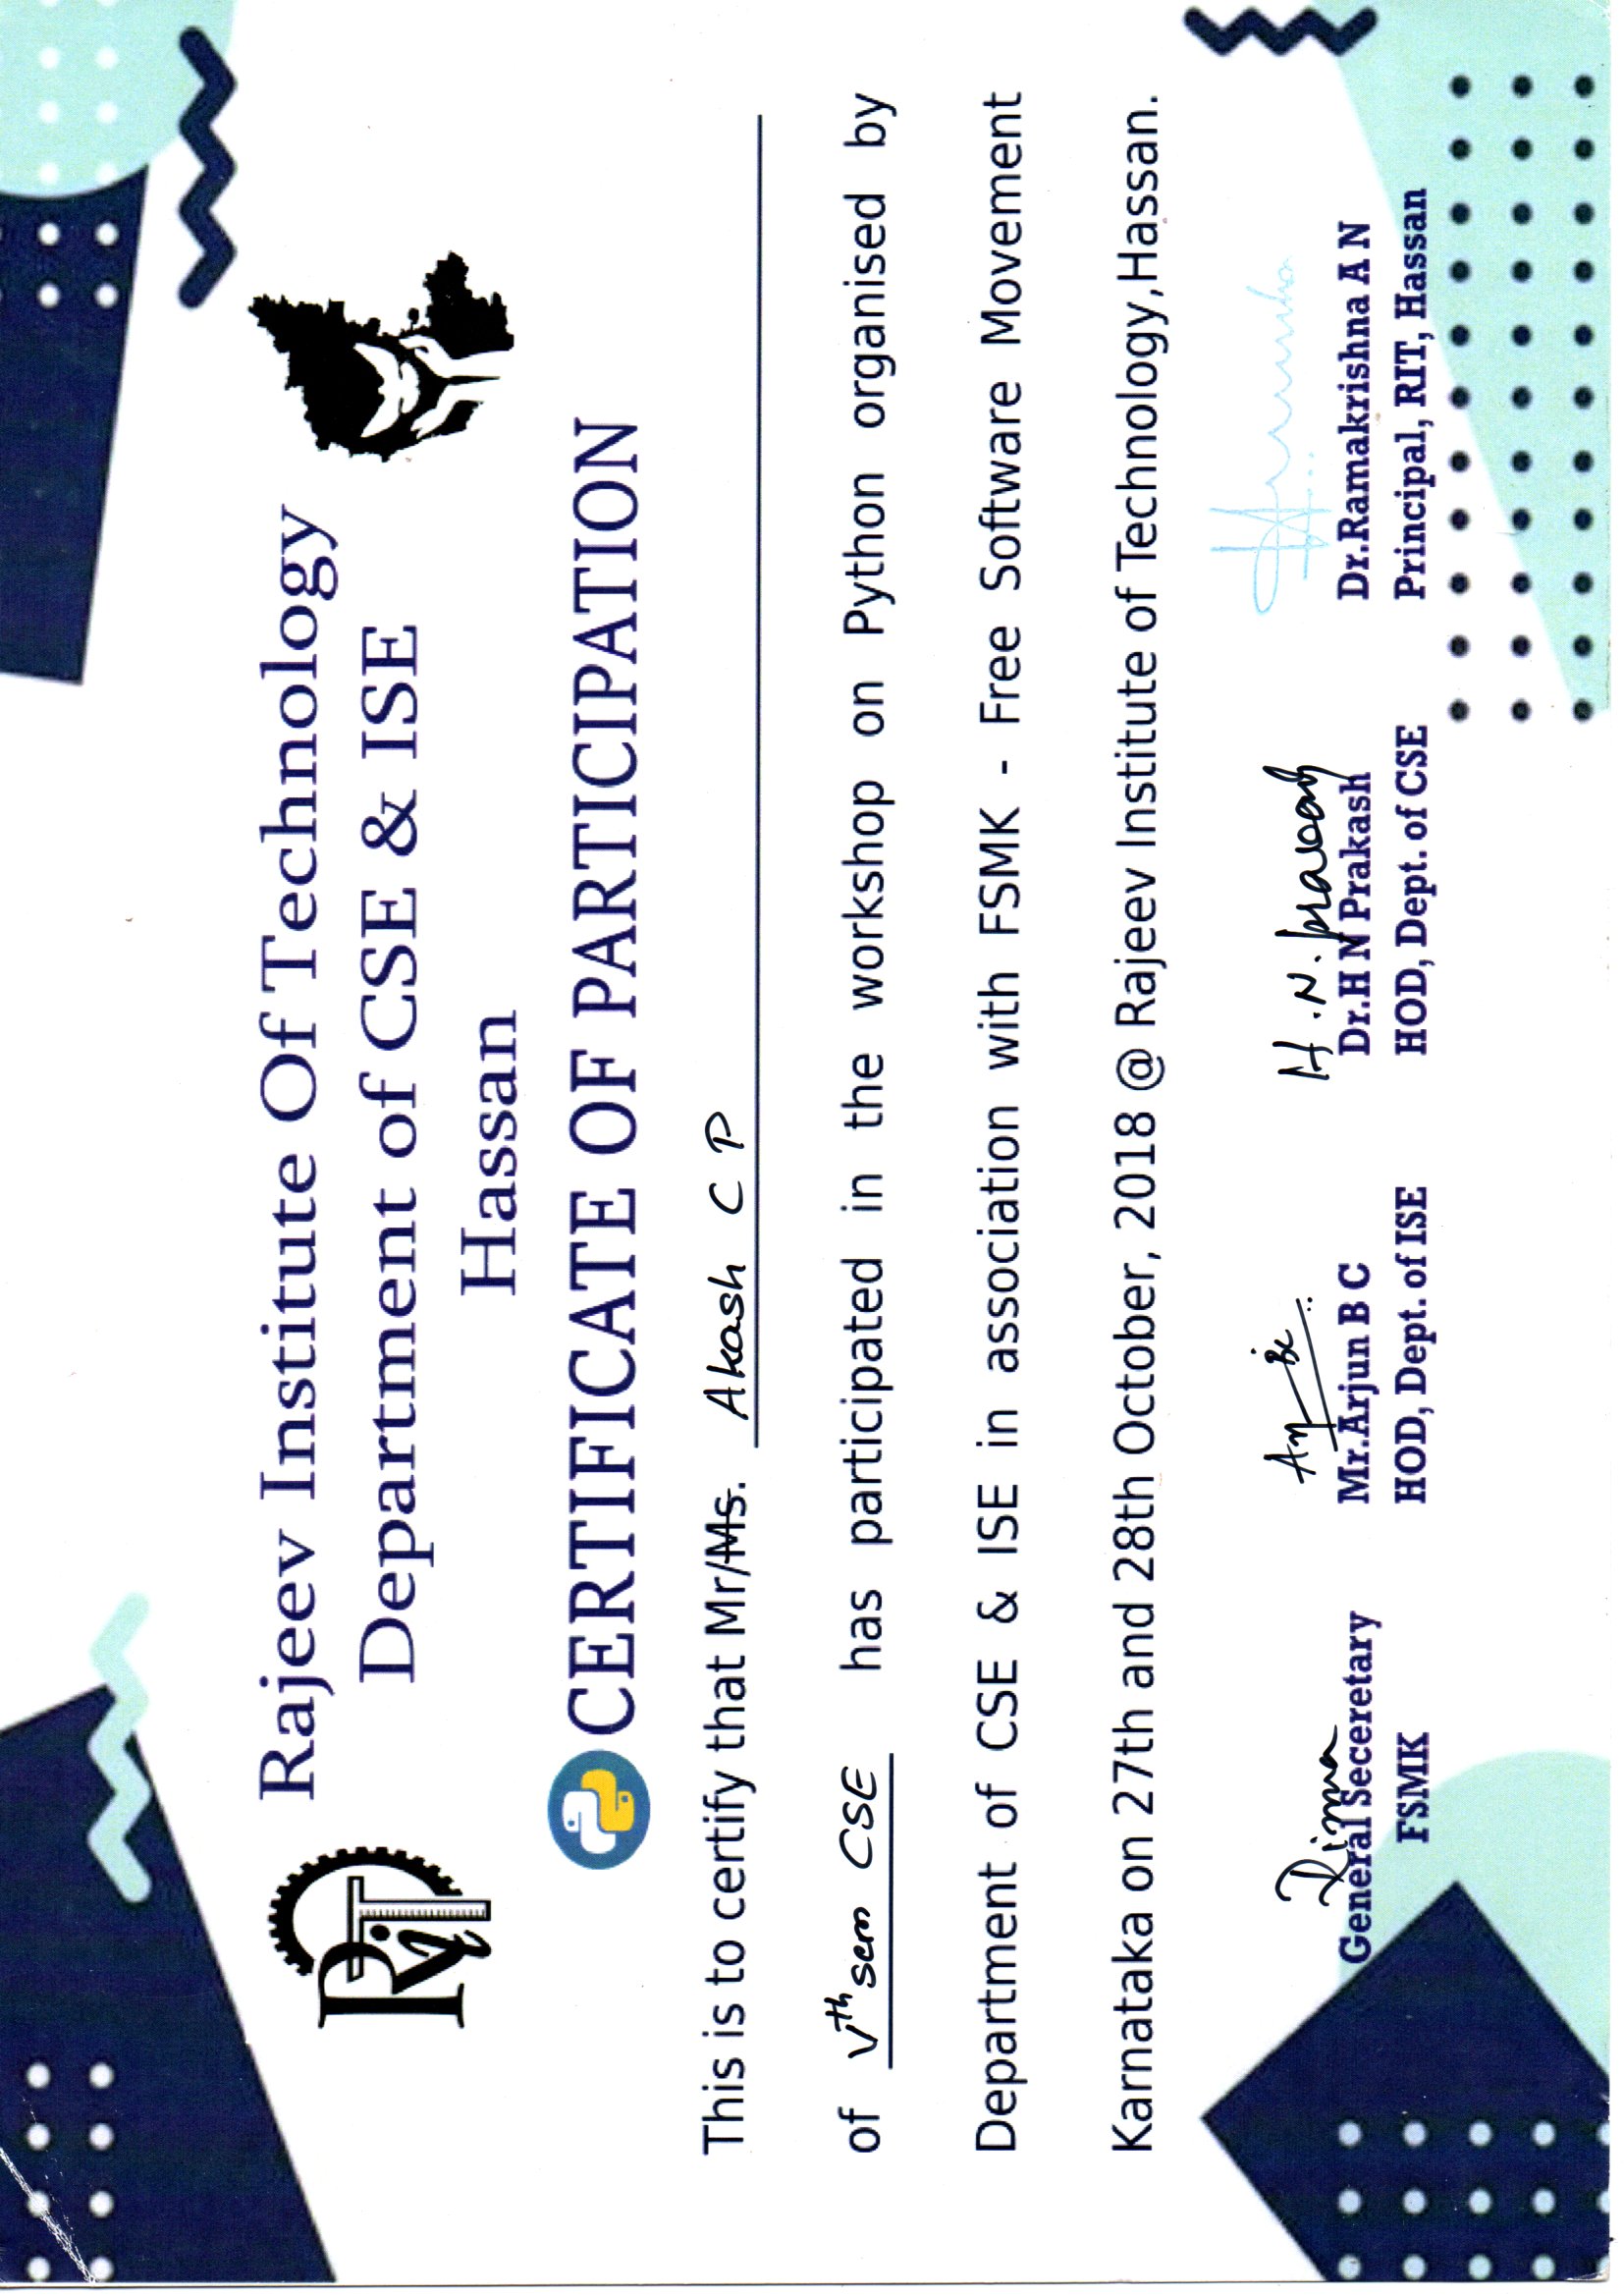 RiT
Rajeev Institute Of Technology
Department of CSE & ISE
Hassan
CERTIFICATE OF PARTICIPATION
This is to certify that Mr/Ms. Akash C P
of Vth sem CSE has participated in the workshop on Python organised by
Department of CSE & ISE in association with FSMK - Free Software Movement
Karnataka on 27th and 28th October, 2018 @ Rajeev Institute of Technology,Hassan.
H.N. Prakash
General Seceretary Mr.Arjun B C Dr.H N Prakash Dr.Ramakrishna A N
FSMK HOD, Dept. of ISE HOD, Dept. of CSE Principal, RIT, Hassan